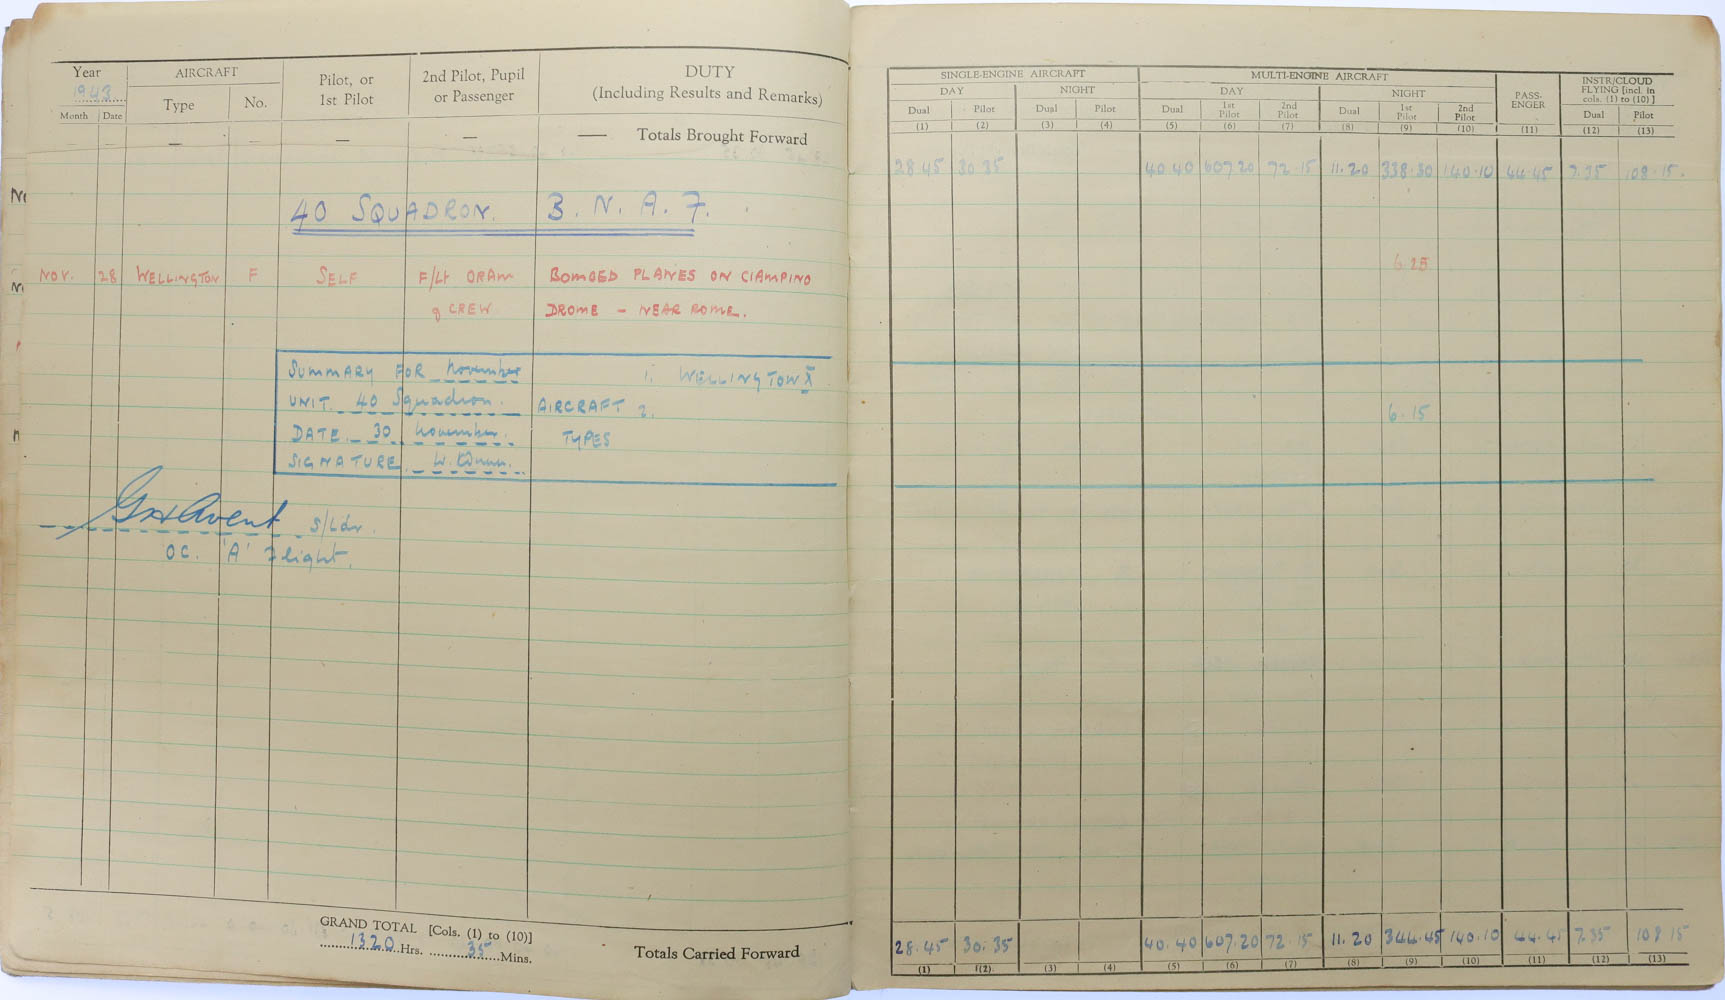 Year
1943
Month Date
AIRCRAFT
Type No.
Pilot, or
1st Pilot
2nd Pilot, Pupil
or Passenger
DUTY
(Including Results and Remarks)
— — — — — — — Totals Brought Forward
40 SQUADRON. B. N. A. F.
NOV. 28 WELLINGTON F SELF F/Lt ORAM BOMBED PLANES ON CIAMPINO
& CREW DROME - NEAR ROME.
SUMMARY FOR November 1. WELLINGTON X
UNIT. 40 Squadron. AIRCRAFT 2.
DATE. 30 November. TYPES
SIGNATURE
S/Ldr.
OC. 'A' Flight.
GRAND TOTAL [Cols. (1) to (10)]
1320 Hrs. 35 Mins.
Totals Carried Forward
SINGLE-ENGINE AIRCRAFT MULTI-ENGINE AIRCRAFT PASS-ENGER INSTR/CLOUD FLYING [incl. in cols. (1) to (10)]
DAY NIGHT DAY NIGHT
Dual Pilot Dual Pilot Dual 1st Pilot 2nd Pilot Dual 1st Pilot 2nd Pilot Dual Pilot
(1) (2) (3) (4) (5) (6) (7) (8) (9) (10) (11) (12) (13)
28.45 30.35 40.40 607.20 72.15 11.20 338.30 140.10 44.45 7.35 108.15.
6.25
6.15
28.45 30.35 40.40 607.20 72.15 11.20 344.45 140.10 44.45 7.35 108 15
(1) (2) (3) (4) (5) (6) (7) (8) (9) (10) (11) (12) (13)